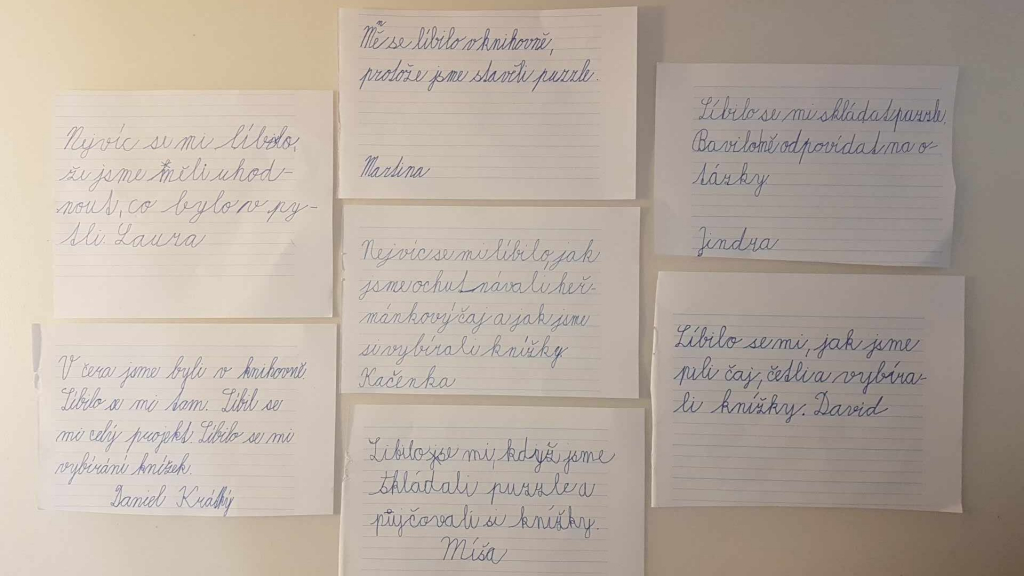 Nejvíc se mi líbilo,
že jsme měli uhod-
nout, co bylo v py-
tli Laura
V čera jsme byli v knihovně.
Líbilo se mi tam. Líbil se
mi celý projekt. Líbilo se mi
vybírání knížek
Daniel Králký
Mně se líbilo v knihovně,
protože jsme stavěli puzzle.
Martina
Nejvíc se mi líbilo jak
jsme ochutnávali heř-
mánkový čaj a jak jsme
si vybírali knížky
Kačenka
Líbilo se mi, když jsme
skládali puzzle a
půjčovali si knížky.
Míša
Líbilo se mi skládat puzzle.
Bavilo mě odpovídat na o-
tázky
Jindra
Líbilo se mi, jak jsme
pili čaj, četli a vybíra-
li knížky. David